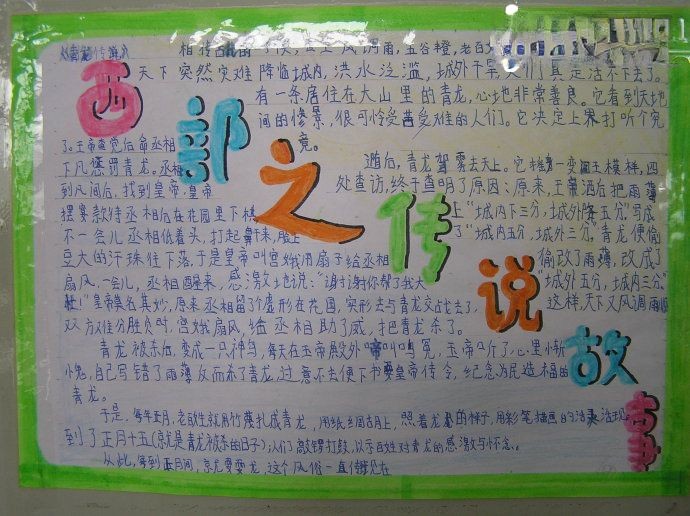 西部之传说故事
《青龙传说》
相传古
风调雨，五谷橙，老百
天下突然灾难降临城内，洪水泛滥，城外干旱，人们真是活不下去了。
有一条居住在大山里的青龙，心地非常善良。它看到天地
间的惨景，很可怜受苦受难的人们。它决定上界打听个究
竟。
过后，青龙驾雾去天上。它摇身一变
模样，四
处查访，终于查明了原因：原来，玉帝酒后把雨薄
上"城内下三分，城外降五分"写成
了"城内五分，城外三分"。青龙便偷
偷改了雨薄，改成了
"城外五分，城内三分"
这样，天下又风调雨顺
了。玉帝查觉后命丞相
下凡惩罚青龙，丞相
到凡间后，找到皇帝，皇帝
摆宴款待丞相后在花园里下棋
不一会儿丞相低着头，打起鼾来，脸上
豆大的汗珠往下落，于是皇帝叫宫娥用扇子给丞相
扇风，一会儿，丞相醒来，感激地说："谢谢你帮了我大
忙！"皇帝莫名其妙，原来丞相留个虚形在花园，实形去与青龙交战去了，
双方难分胜负时，宫娥扇风，给丞相助了威，把青龙杀了。
青龙被杀后，变成一只神鸟，每天在玉帝殿外
叫鸣冤，玉帝
了，心里
小鬼，自己写错了雨薄反而杀了青龙，过意不去便下书要皇帝传令，纪念为民造福的
青龙。
于是，每年正月，老百姓就用竹篾扎成青龙，用纸
照着龙的样子，用彩笔描画的活灵活现
到了正月十五(就是青龙被杀的日子)人们敲锣打鼓，以示百姓对青龙的感激与怀念。
从此，每到正月间，
要耍龙，这个风俗一直传
现在